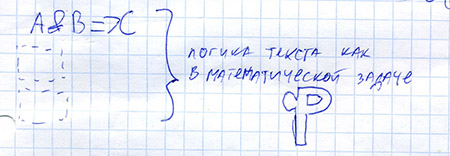 A & B => C
логика текста как
в математической задаче